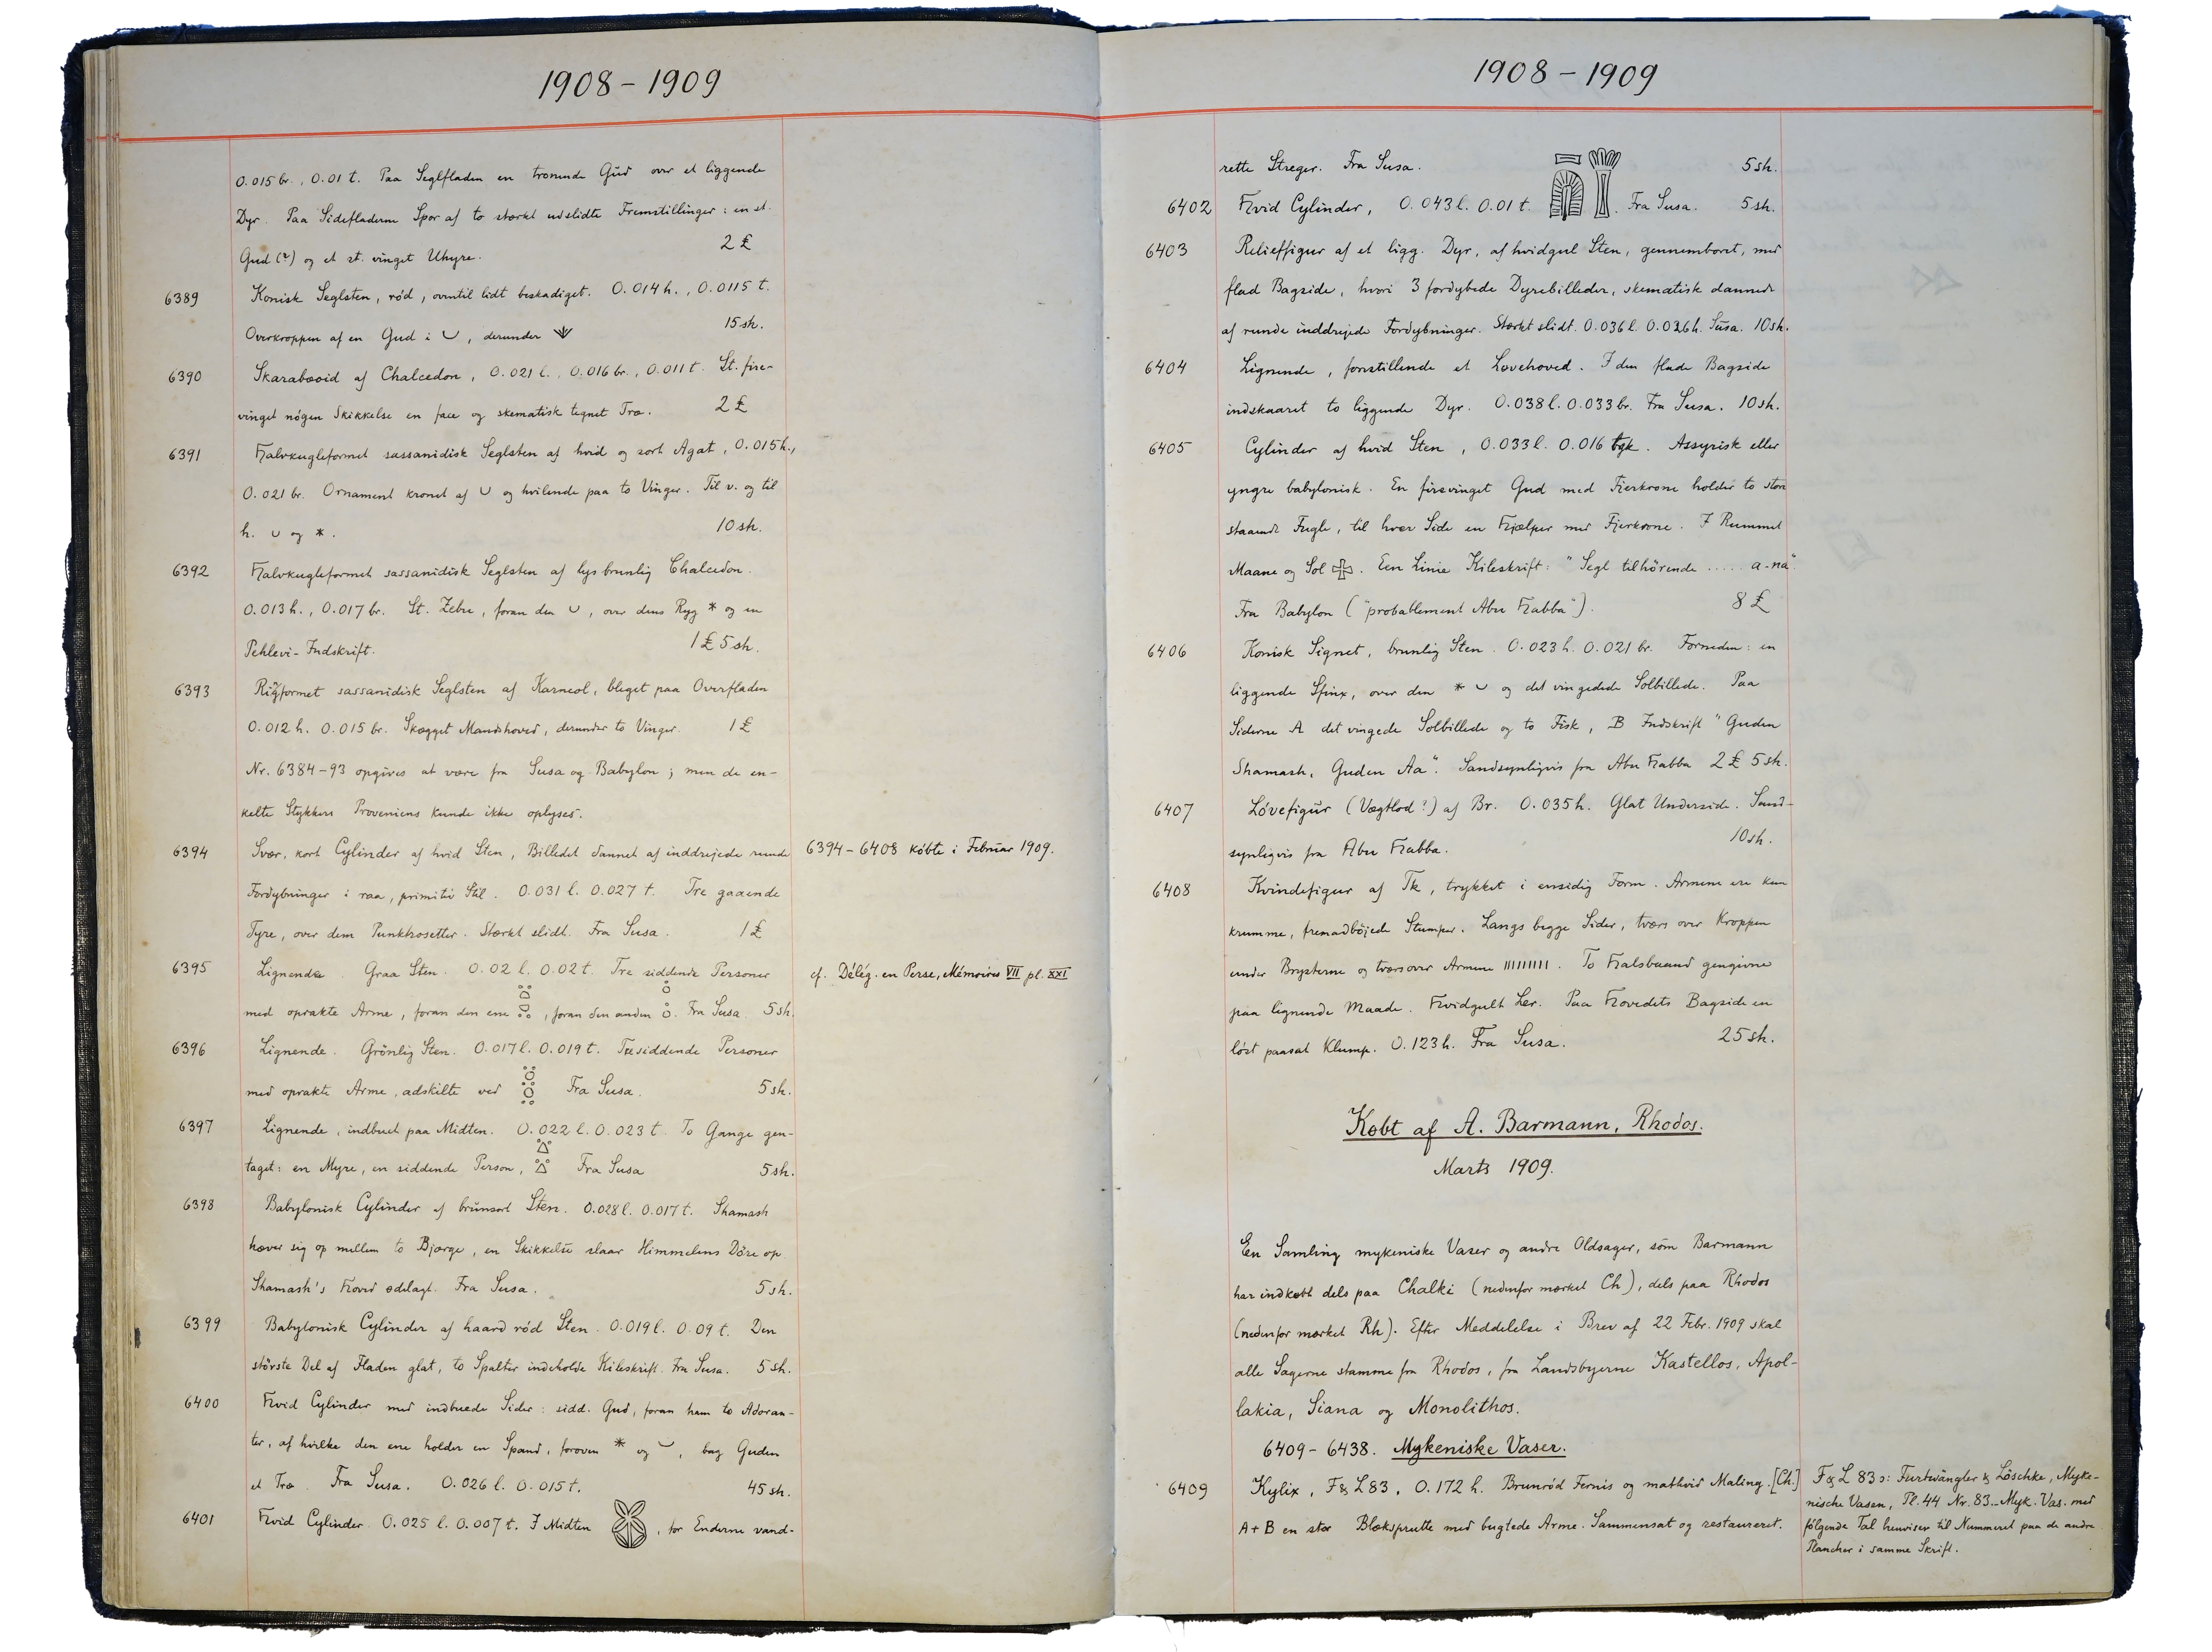 1908 – 1909
0.015 br., 0.01 t. Paa Seglfladen en tronende Gud over et liggende
Dyr. Paa Sidefladerne Spor af to stærkt udslidte Fremstillinger: en st.
Gud (?) og et st. vinget Uhyre. 2 £
6389 Konisk Seglsten, rød, oventil lidt beskadiget. 0.014 h., 0.0115 t.
Overkroppen af en Gud i ‿, derunder 15 sh.
6390 Skarabæoid af Chalcedon, 0.021 l. 0.016 br., 0.011 t. St. fire-
vinget nøgen Skikkelse en face og skematisk tegnet Træ. 2 £
6391 Halvkugleformet sassanidisk Seglsten af hvid og sort Agat, 0.015 h.,
0.021 br. Ornament kronet af ∪ og hvilende paa to Vinger. Til v. og til
h. ∪ og *. 10 sh.
6392 Halvkugleformet sassanidisk Seglsten af lysbrunlig Chalcedon.
0.013 h., 0.017 br. St. Zebu, foran den ∪, over dens Ryg * og en
Pehlevi-Indskrift. 1 £ 5 sh.
6393 Ringformet sassanidisk Seglsten af Karneol, bleget paa Overfladen
0.012 h. 0.015 br. Skægget Mandshoved, derunder to Vinger. 1 £
Nr. 6384–93 opgives at være fra Susa og Babylon; men de en-
kelte Stykkers Proveniens kunde ikke oplyses.
6394 Svær, kort Cylinder af hvid Sten, Billedet dannet af inddrejede runde 6394 – 6408 købte i Februar 1909.
Fordybninger i raa, primitiv Stil. 0.031 l. 0.027 t. Tre gaaende
Tyre, over dem Punktrosetter. Stærkt slidt. Fra Susa. 1 £
6395 Lignende. Graa Sten. 0.02 l. 0.02 t. Tre siddende Personer cf. Délég. en Perse, Mémoires VII pl. XXI
med oprakte Arme, foran den ene , foran den anden . Fra Susa. 5 sh.
6396 Lignende. Grønlig Sten. 0.017 l. 0.019 t. Tre siddende Personer
med oprakte Arme, adskilte ved Fra Susa. 5 sh.
6397 Lignende, indbuet paa Midten. 0.022 l. 0.023 t. To Gange gen-
taget: en Myre, en siddende Person, Fra Susa 5 sh.
6398 Babylonisk Cylinder af brunsort Sten. 0.028 l. 0.017 t. Shamash
hæver sig op mellem to Bjærge, en Skikkelse slaar Himmelens Døre op.
Shamash's Hoved ødelagt. Fra Susa. 5 sh.
6399 Babylonisk Cylinder af haard rød Sten. 0.019 l. 0.09 t. Den
største Del af Fladen glat, to Spalter indeholde Kileskrift. Fra Susa. 5 sh.
6400 Hvid Cylinder med indbuede Sider: sidd. Gud, foran ham to Adoran-
ter, af hvilke den ene holder en Spand, foroven * og ‿, bag Guden
et Træ. Fra Susa. 0.026 l. 0.015 t. 45 sh.
6401 Hvid Cylinder. 0.025 l. 0.007 t. I Midten , for Enderne vand-
1908 – 1909
rette Streger. Fra Susa. 5 sh.
6402 Hvid Cylinder, 0.043 l. 0.01 t. . Fra Susa. 5 sh.
6403 Relieffigur af et ligg. Dyr, af hvidgul Sten, gennemboret, med
flad Bagside, hvori 3 fordybede Dyrebilleder, skematisk dannede
af runde inddrejede Fordybninger. Stærkt slidt. 0.036 l. 0.026 h. Susa. 10 sh.
6404 Lignende, forestillende et Løvehoved. I den flade Bagside
indskaaret to liggende Dyr. 0.038 l. 0.033 br. Fra Susa. 10 sh.
6405 Cylinder af hvid Sten, 0.033 l. 0.016 tyk. Assyrisk eller
yngre babylonisk. En firevinget Gud med Fjerkrone holder to store
staaende Fugle, til hver Side en Hjælper med Fjerkrone. I Rummet
Maane og Sol . Een Linie Kileskrift: "Segl tilhørende ..... a-na".
Fra Babylon ("probablement Abu Habba"). 8 £
6406 Konisk Signet, brunlig Sten. 0.023 h. 0.021 br. Forneden: en
liggende Sfinx, over den * ‿ og det vingedede Solbillede. Paa
Siderne A det vingede Solbillede og to Fisk, B Indskrift "Guden
Shamash, Guden Aa". Sandsynligvis fra Abu Habba 2 £ 5 sh.
6407 Løvefigur (Vægtlod?) af Br. 0.035 h. Glat Underside. Sand-
synligvis fra Abu Habba. 10 sh.
6408 Kvindefigur af Tk, trykket i ensidig Form. Armene ere kun
krumme, fremadbøjede Stumper. Langs begge Sider, tværs over Kroppen
under Brysterne og tværs over Armene |||||||||. To Halsbaand gengivne
paa lignende Maade. Hvidgult Ler. Paa Hovedets Bagside en
løst paasat Klump. 0.123 h. Fra Susa. 25 sh.
Købt af A. Barmann, Rhodos.
Marts 1909.
En Samling mykeniske Vaser og andre Oldsager, som Barmann
har indkøbt dels paa Chalki (nedenfor mærket Ch), dels paa Rhodos
(nedenfor mærket Rh). Efter Meddelelse i Brev af 22 Febr. 1909 skal
alle Sagerne stamme fra Rhodos, fra Landsbyerne Kastellos, Apol-
lakia, Siana og Monolithos.
6409 – 6438. Mykeniske Vaser.
6409 Kylix, F & L 83, 0.172 h. Brunrød Fernis og mathvid Maling. [Ch]
A + B en stor Blæksprutte med bugtede Arme. Sammensat og restaureret.
F & L 83 ɔ: Furtwängler & Löschke, Myke-
nische Vasen, Pl. 44 Nr. 83. – Myk. Vas. med
følgende Tal henviser til Nummeret paa de andre
Plancher i samme Skrift.